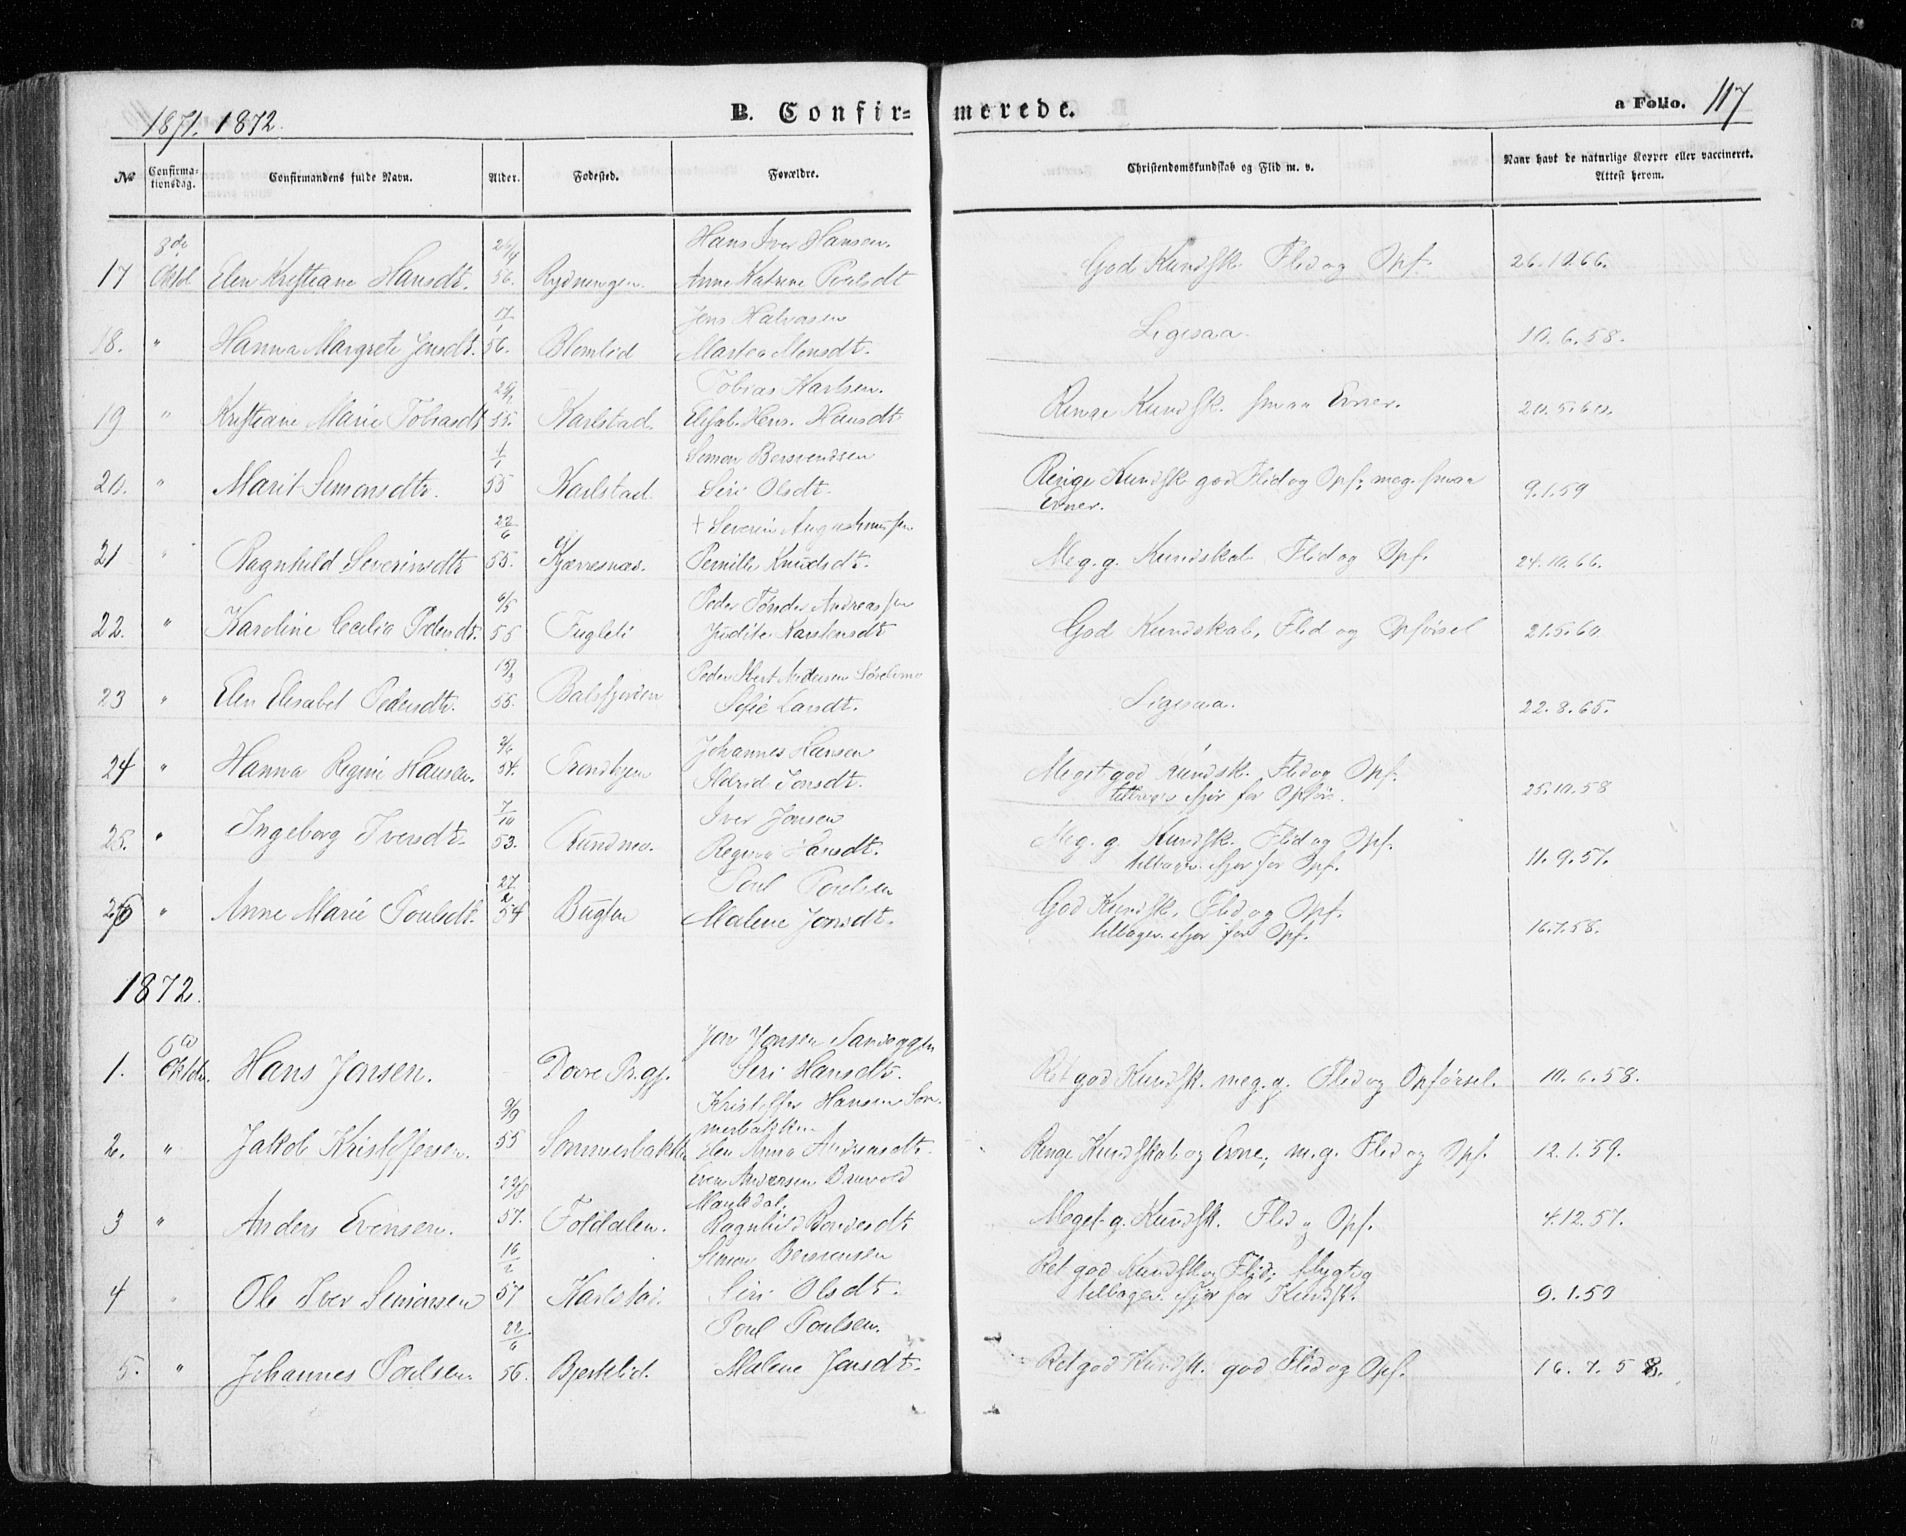 1871. 1872.
B. Confirmerede.
a Folio. 117
No Confirmationsdag. Confirmandens fulde Navn. Alder. Fødested. Forældre. Christendomskundskab og Flid m. v. Naar havt de naturlige Kopper eller vaccineret. Attest herom.
3de Hans Iver Hansen.
17 Oktbr Elen Kristiane Hansdt. 56. Rydningen. Anne Katrine Poulsdt God Kundsk. Flid og Opf. 26.10.66.
17/1 Jens Halvasen
18. " Hanna Margrete Jensdt. 56. Blomlid Martea Monsdt. Ligesaa. 10.6.58.
29/1 Tobias Karlsen.
19 " Kristiane Marie Tobiasdt 55. Karlstad. Elisab. Hens. Hansdt Ringe Kundsk. smaa Evner. 20.5.60.
1/1 Simon Bersvendsen
20. " Marit Simonsdt. 55 Karlstad. Siri Olsdt. Ringe Kundsk. god Flid og Opf; meg. smaa Evner. 9.1.59
22/6 + Severin Augustinussen
21 " Ragnhild Severinsdt 55. Kjerresnæs. Pernille Knudsdt. Meg. g. Kundskab Flid og Opf. 24.10.66.
6/5 Peder Tønder Andreassen
22. " Karoline Cecilia Pedersdt. 55 Fugleli Judite Karstensdt God Kundskab, Flid og Opførsel 21.5.60.
15/3 Peder Abert Andersen
23 " Elen Elisabet Pedersdtr. 55. Balsfjorden Sofie Larsdt. Ligesaa. 22.8.65.
2/6 Johannes Hansen
24 " Hanna Regine Hansen. 54. Trondhjem Aldrid Jonsdt. Meget god Kundsk. Flid og Opf. tilbagev. ifjor for Opførs. 25.10.58
7/10 Iver Jonsen
25. " Ingeborg Iversdt. 53. Rundmo. Regina Hansdt. Meg. g. Kundsk. Flid og Opf. tilbagev. ifjor for Opf. 11.9.57.
27/2 Poul Poulsen
26 " Anne Marie Poulsdt. 54 Bugten Malene Jonsdt. God Kundsk. Flid og Opf. tilbagev. ifjor for Opf. 16.7.58.
1872.
6te Jon Jonsen Sandeggen
1. Oktbr. Hans Jonsen. Dovre Pr.gj. Siri Hansdt. Ret god Kundsk. meg. g. Flid og Opførsel. 10.6.58.
9/9 Kristoffer Hansen Sommerbakken
2. " Jakob Kristoffersen. 55 Sommerbakken Elen Anna Andreasdt. Ringe Kundskab og Evne; m.g. Flid og Opf. 12.1.59.
22/8 Even Andersen Bruvold Maalsdal,
3 " Anders Evensen. 57. Foldalen. Ragnhild Bendesdt Meget g. Kundsk. Flid og Opf. 4.12.57.
16/2 Simon Bersvensen
4 " Ole Iver Simonsen 57 Karlstad. Siri Olsdt. Ret god Kundsk og Flid; tilbagev. ifjor for Kundsk. 9.1.59
22/6 Poul Poulsen.
5. " Johannes Poulsen. 56. Bjerklid. Malene Jonsdt. Ret god Kundsk. god Flid og Opf. 16.7.58.